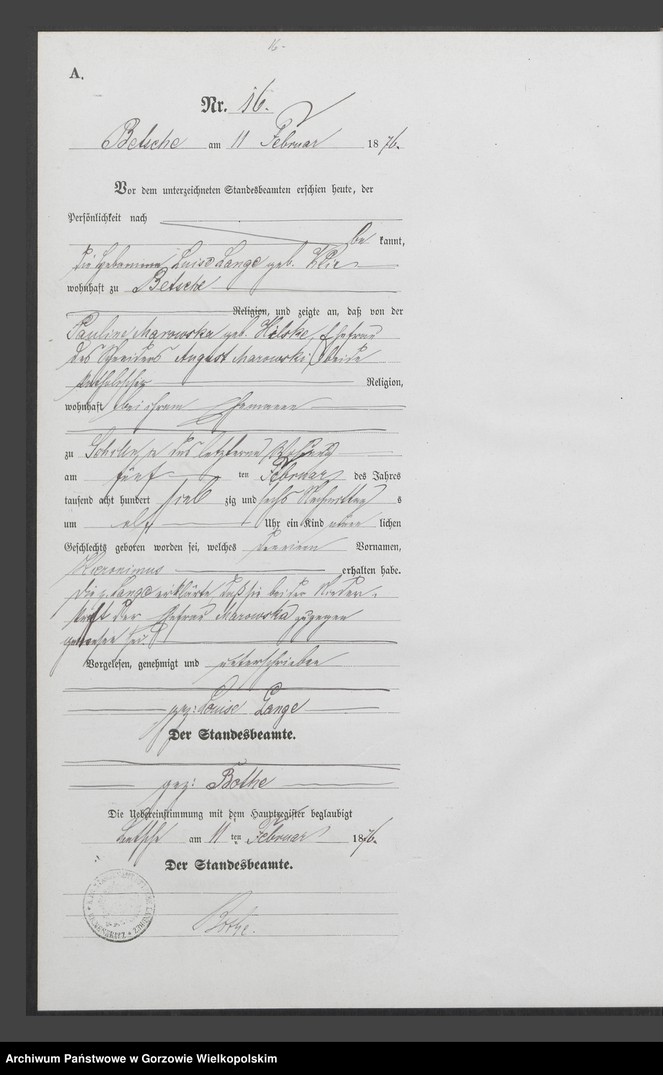 A.
Nr. 16.
Betsche am 11 Februar 1876.
Vor dem unterzeichneten Standesbeamten erschien heute, der
Persönlichkeit nach
be kannt,
die Hebamme Luise Lange geb.
wohnhaft zu Betsche
Religion, und zeigte an, daß von der
Pauline Marowska geb. Ehefrau
des August Marowski beide
katholischer Religion,
wohnhaft bei ihrem Ehemanne
zu
am fünf ten Februar des Jahres
tausend acht hundert sieb zig und sechs Nachmittag s
um elf Uhr ein Kind männ lichen
Geschlechts geboren worden sei, welches den einen Vornamen,
Hieronimus erhalten habe.
Die p. Lange erklärte, daß sie bei der Nieder-
kunft der Ehefrau Marowska zugegen
gewesen sei.
Vorgelesen, genehmigt und unterschrieben
gez: Louise Lange
Der Standesbeamte.
gez: Bothe
Die Uebereinstimmung mit dem Hauptregister beglaubigt
Betsche am 11 ten Februar 1876.
Der Standesbeamte.
Bothe.
Archiwum Państwowe w Gorzowie Wielkopolskim